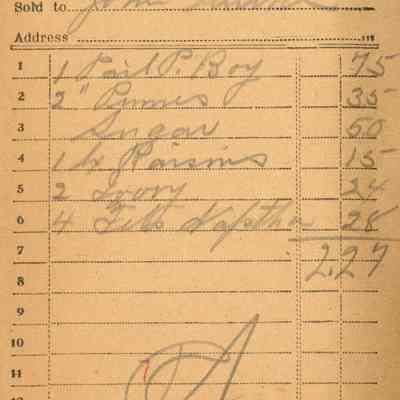 Sold to John
Address
1 1 Pail P. Boy 75
2 2 " Prunes 35
3 Sugar 50
4 1 lb Raisins 15
5 2 Ivory 24
6 4 Fels Naptha 28
7 2.27
8
9
10
11